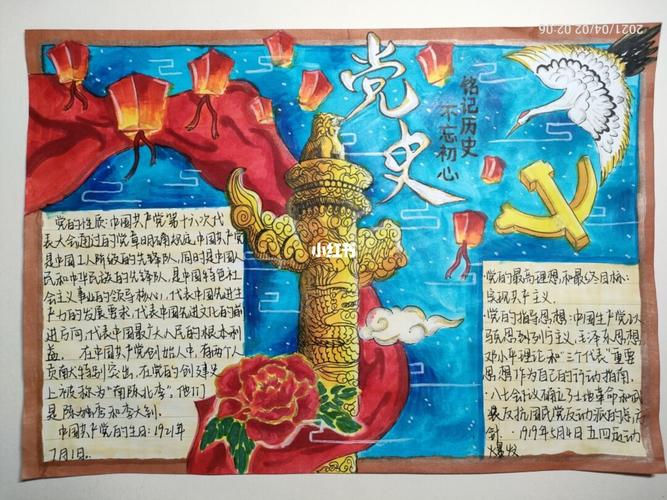 2021/04/02 02:06
党史
铭记历史
不忘初心
小红书
党的性质:中国共产党第十六次代
表大会通过的党章明确规定,中国共产党
是中国工人阶级的先锋队,同时是中国人
民和中华民族的先锋队,是中国特色社
会主义事业的领导核心,代表中国先进生
产力的发展要求,代表中国先进文化的前
进方向,代表中国最广大人民的根本利
益。 在中国共产党创始人中,有两个人
贡献特别突出,在党的创建史
上被称为“南陈北李”,他们
是陈独秀和李大钊。
中国共产党的生日:1921年
7月1日。
党的最高理想和最终目标:
实现共产主义.
·党的指导思想:中国共产党以马
列主义,毛泽东思想,
邓小平理论和“三个代表”重要
思想作为自己的行动指南.
·八七会议确立了土地革命和武
装反抗国民党反动派的总方
针. ·1919年5月4日五四运动
爆发